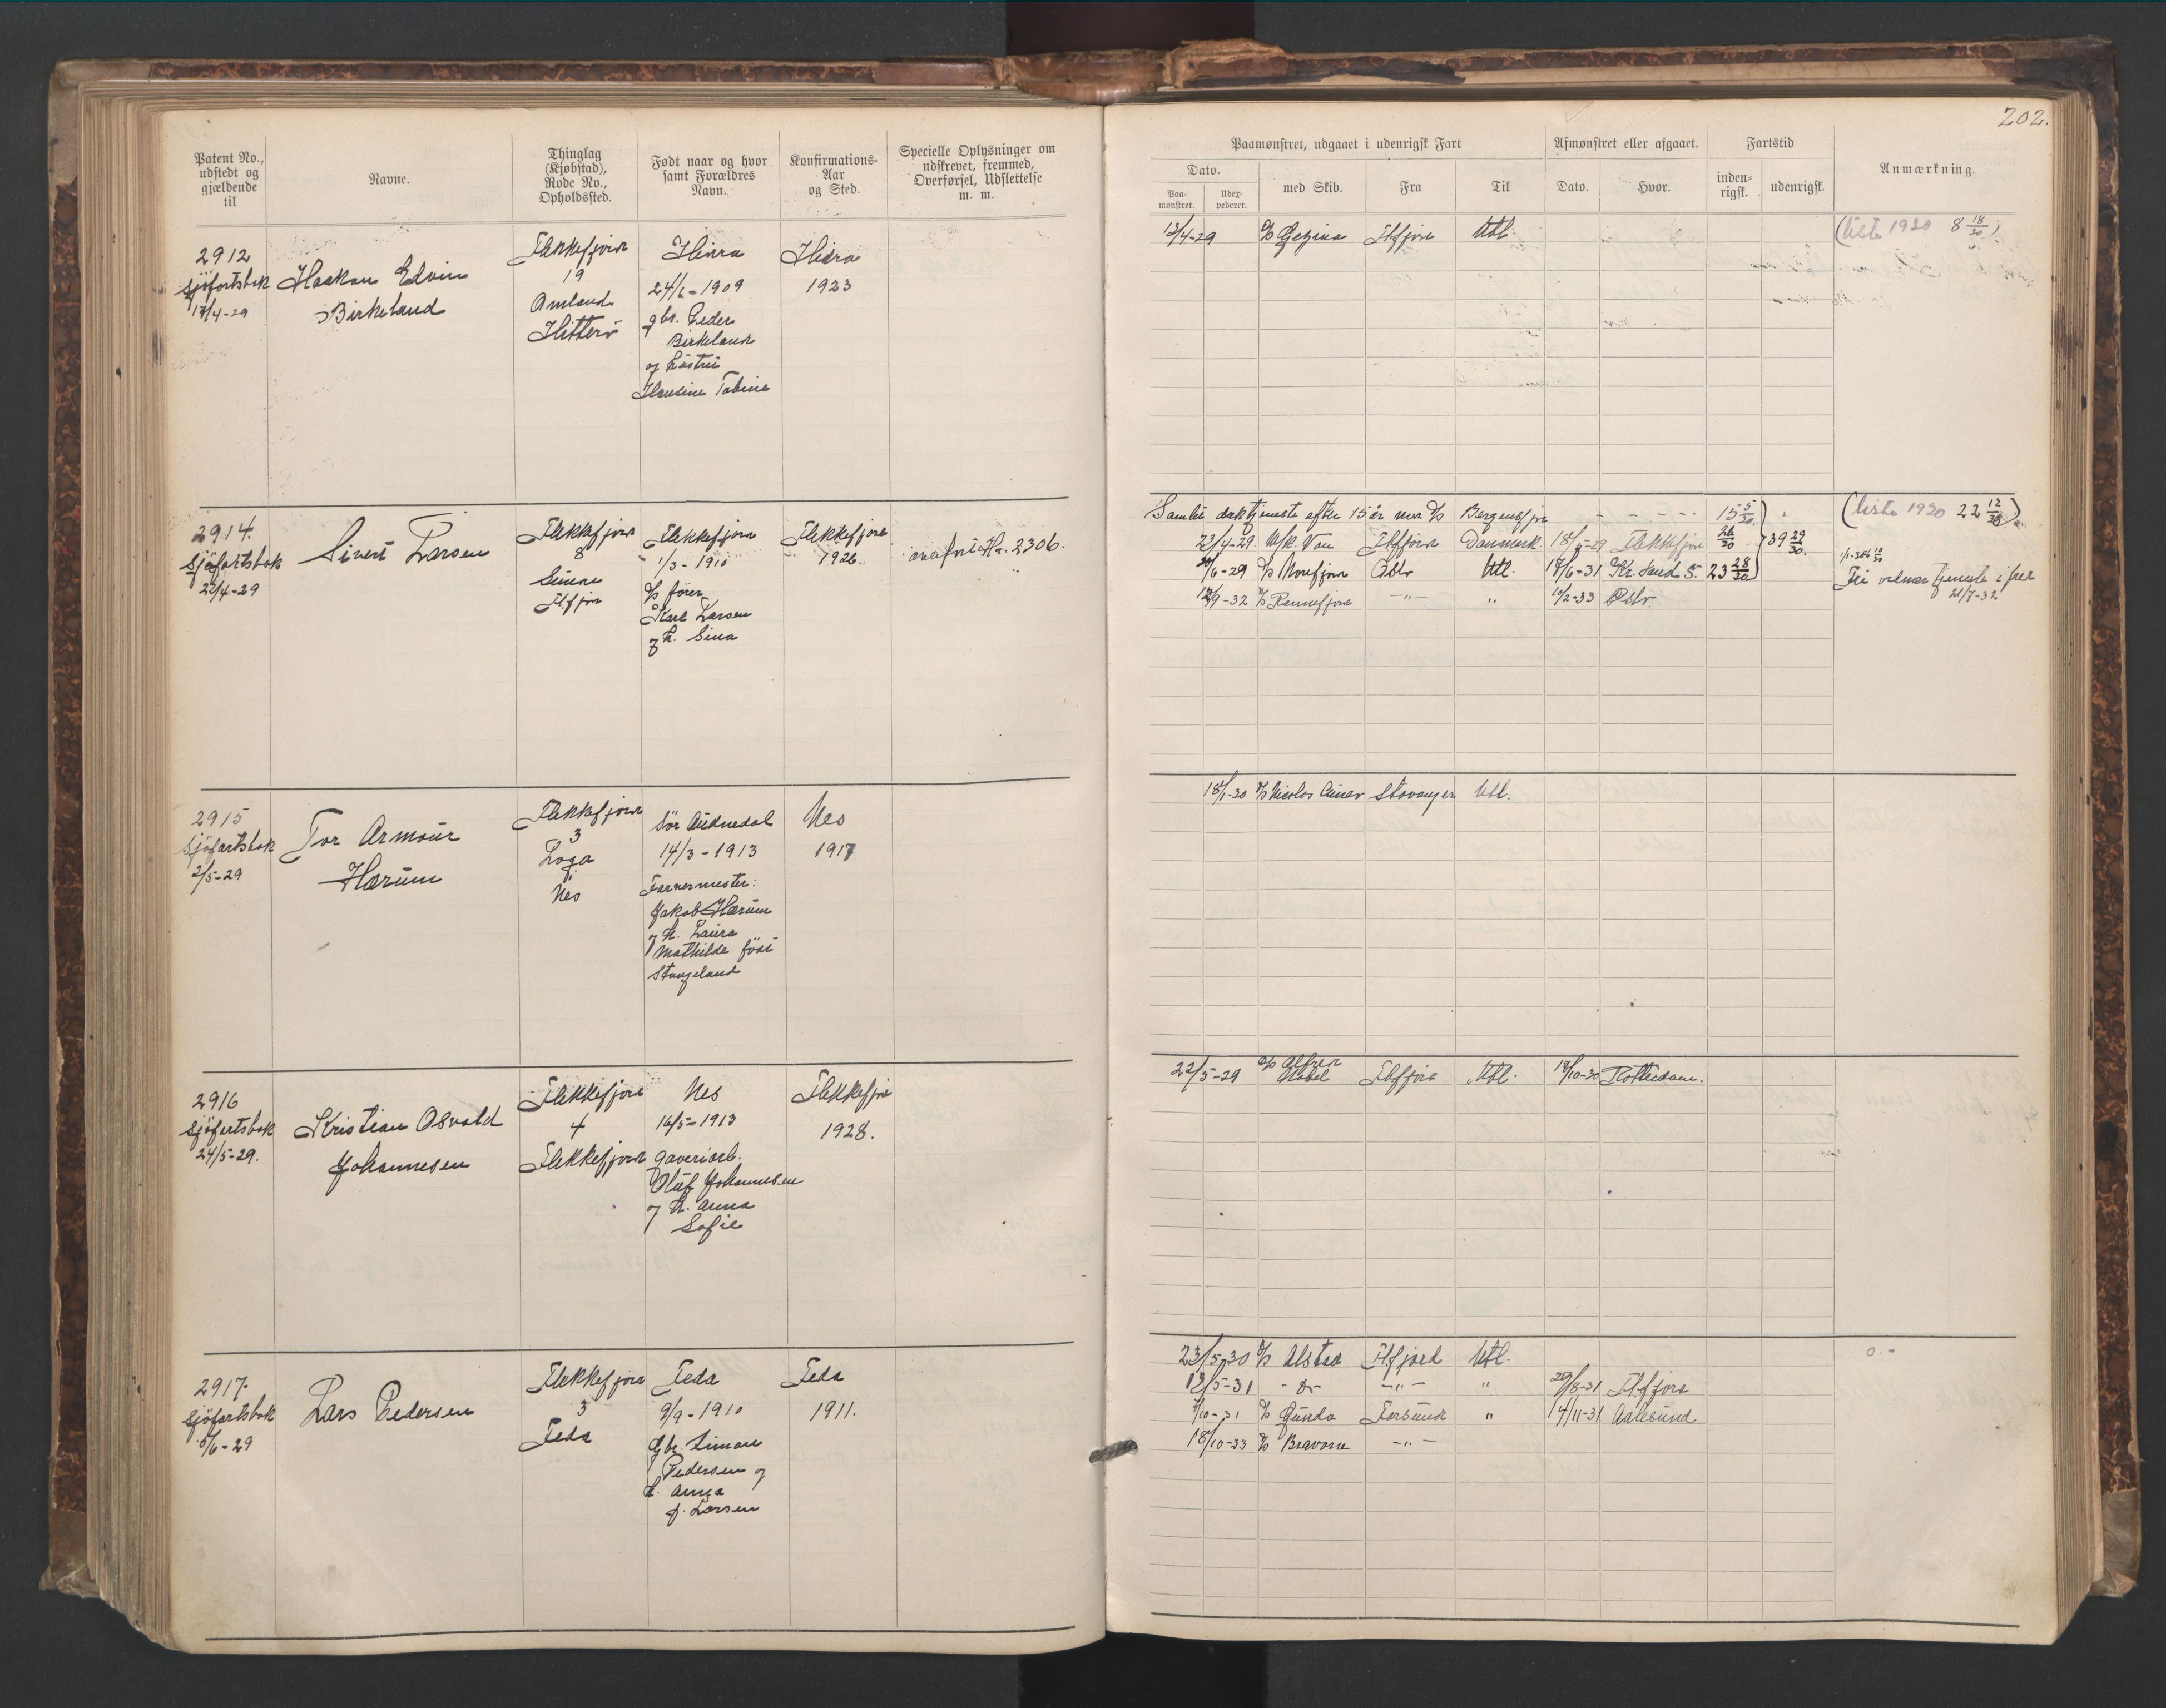 202.
Patent No., udstedt og gjældende til
Navne.
Thinglag (Kjøbstad), Rode No., Opholdssted.
Født naar og hvor samt Forældres Navn.
Konfirmations-Aar og Sted.
Specielle Oplysninger om udskrevet, fremmed, Overførsel, Udslettelse m. m.
Paamønstret, udgaaet i udenrigsk Fart
Afmønstret eller afgaaet.
Fartstid
Anmærkning.
Dato.
Paa-mønstret.
Udex-pederet.
med Skib.
Fra
Til
Dato.
Hvor.
inden-rigsk.
udenrigsk.
2912
Sjøfartsbok
17/4-29
Haakon Edvin
Birkeland
Flekkefjord
19
Omland
Hitterö
Hidra
24/6-1909
gbr. Peder
Birkeland
og hustru
Hansine Tobine
Hidra
1923
13/4-29 Gezina Flfjord Utl.
(liste 1930 8 18/30)
2914.
Sjøfartsbok
22/4-29
Sivert Larsen
Flekkefjord
8
Sunde
Flfjor
Flekkefjord
1/3-1910
fører
Karl Larsen
og h. Sina
Flekkefjord
1926.
2306.
Samlet dækstjeneste efter 15 år Bergensfjor - - - - - 15 5/30
(liste 1930 22 12/30)
23/4-29 Flfjord Danmark 18/5-29 Flekkefjor 26/30 39 29/30.
6-29 Oslo Utl. 6-31 Kr.sand S. 23 28/30
9-32 Rannefjord -"- " 10/2-33 Oslo.
21/7-32
2915
Sjøfartsbok
2/5-29
Tor Armour
Hærum
Flekkefjord
3
Loga
Nes
Sör Audnedal
14/3-1913
Farvermester:
Jakob Hærum
og h. Laura
Mathilde födt
Stangeland
Nes
1917
18/1-30 Nicolos Stavanger Utl.
2916
Sjøfartsbok
24/5-29.
Kristian Osvald
Johannesen
Flekkefjord
4
Flekkefjord
Nes
16/5-1913
garveriarb.
Oluf Johannesen
og h. Anna
Sofie
Flekkefjor
1928.
22/5-29 Alfred Nobel Flfjord Utl. 10-30 Rotterdam.
2917.
Sjøfartsbok
5/6-29
Lars Pedersen
Flekkefjord
3
Feda
Feda
9/9-1910
Gbr. Simon
Pedersen og
h. Anna
f. Larsen
Feda
1911.
23/5-30 Alstad Flfjord Utl.
12/5-31 - do - -"- " 29/8-31 Flfjord
10-31 Gunda Farsund " 14/11-31 Aalesund
18/10-33 Bravore -"-